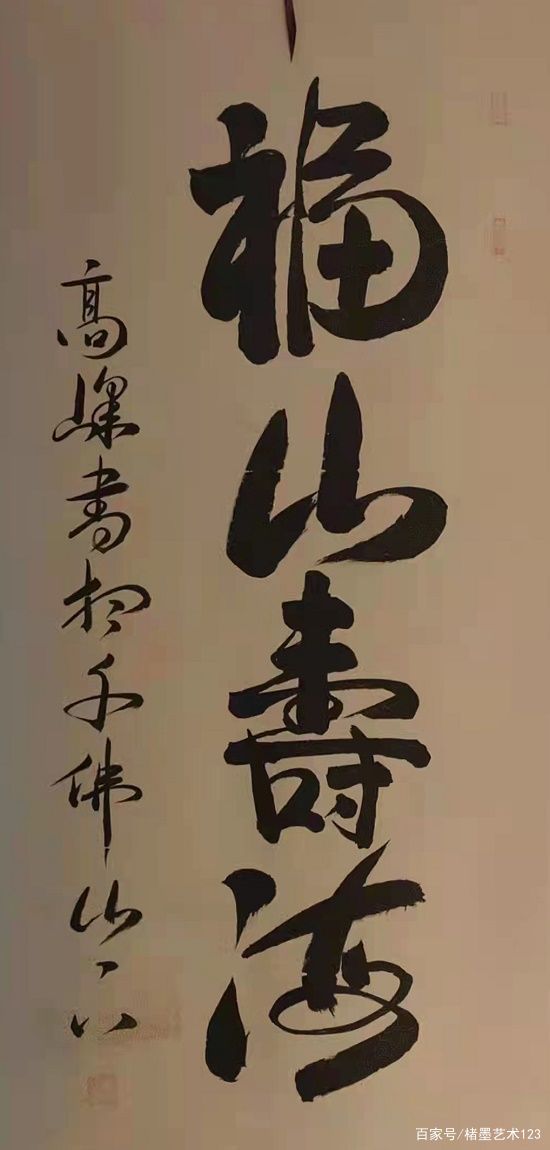 福山寿海
高嵘书於千佛山下
百家号/楮墨艺术123